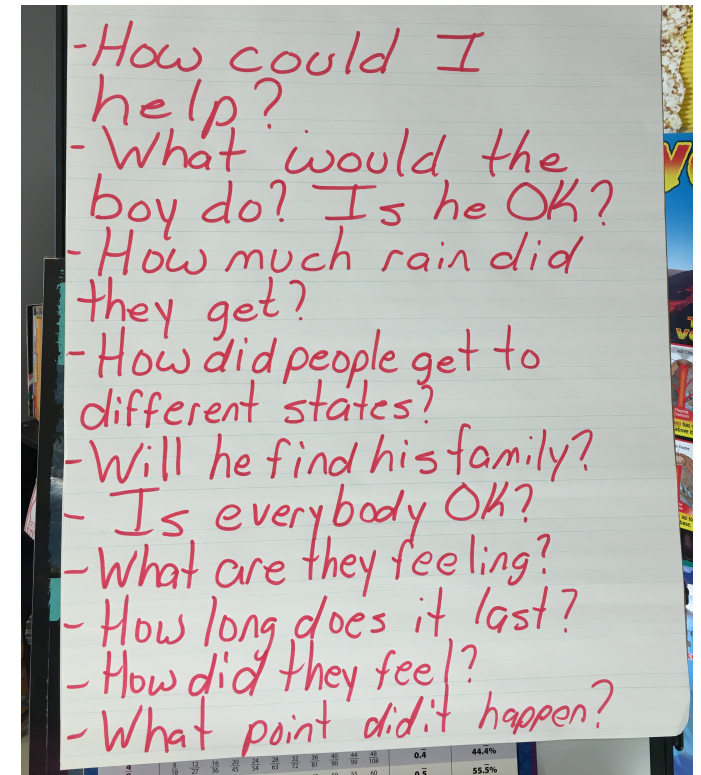 -How could I
help?
-What would the
boy do? Is he OK?
-How much rain did
they get?
-How did people get to
different states?
-Will he find his family?
- Is everybody OK?
-What are they feeling?
- How long does it last?
- How did they feel?
- What point did it happen?
4 8 12 16 20 24 28 32 36 40 44 48
18 27 36 45 54 63 72 81 90 99 108
0.4 44.4%
0.5 55.5%